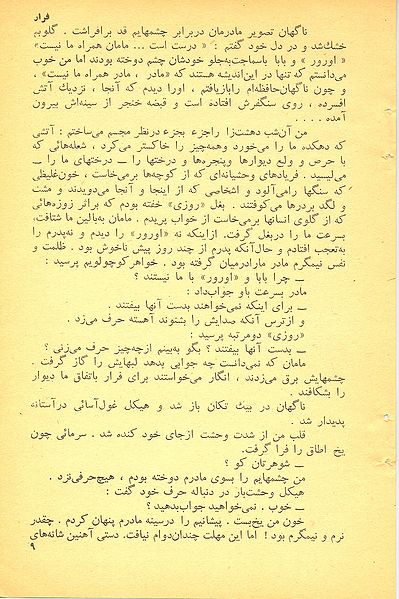 فرار
ناگهان تصویر مادرمان دربرابر چشمهایم قد برافراشت . گلویم
خشك‌شد و در دل خود گفتم : « درست است ... مامان همراه ما نیست»
« اورور » و بابا باسماجت‌به‌جلو خودشان چشم دوخته بودند اما من خوب
می‌دانستم که تنها در این‌اندیشه هستند که «مادر ، مادر همراه ما نیست» ،
و چون ناگهان‌حافظه‌ام رابازیافتم ، اورا دیدم که آنجا ، نزدیك آتش
افسرده ، روی سنگفرش افتاده است و قبضه خنجر از سینه‌اش بیرون
آمده . . . .
من آن‌شب دهشت‌زا راجزء بجزء درنظر مجسم می‌ساختم : آتشی
که دهکده ما را می‌خورد وهمه‌چیز را خاکستر می‌کرد ، شعله‌هائی که
با حرص و ولع دیوارها وپنجره‌ها و درختها را ــ درختهای ما را ــ
می‌لیسید . فریادهای وحشیانه‌ای که از کوچه‌ها برمی‌خاست ، خون‌غلیظی
که سنگها رامی‌آلود و اشخاصی که از اینجا و آنجا می‌دویدند و مشت
و لگد بردرها می‌کوفتند . بغل «روزی» خفته بودم که براثر زوزه‌هائی
که از گلوی انسانها برمی‌خاست از خواب پریدم . مامان به‌بالین ما شتافت،
بسرعت ما را دربغل گرفت. ازاینکه نه «اورور» را دیدم و نه‌پدرم را
به‌تعجب افتادم و حال‌آنکه پدرم از چند روز پیش ناخوش بود . ظلمت و
نفس نیمگرم مادر مارادرمیان گرفته بود . خواهرکوچولویم پرسید :
ــ چرا بابا و «اورور» با ما نیستند ؟
مادر بسرعت باو جواب‌داد :
ــ برای اینکه نمی‌خواهند بدست آنها بیفتند .
و ازترس آنکه صدایش را بشنوند آهسته حرف می‌زد .
«روزی» دومرتبه پرسید :
ــ بدست آنها بیفتند ؟ بگو به‌بینم ازچه‌چیز حرف می‌زنی ؟
مامان که نمی‌دانست چه جوابی بدهد لبهایش را گاز گرفت .
چشمهایش برق می‌زدند ، انگار می‌خواستند برای فرار باتفاق ما دیوار
را بشکافند .
ناگهان در بیت تکان باز شد و هیکل غول‌آسائی درآستانه
پدیدار شد .
قلب من از شدت وحشت ازجای خود کنده شد . سرمائی چون
یخ اطاق را فرا گرفت.
ــ شوهرتان کو ؟
من چشمهایم را بسوی مادرم دوخته بودم ، هیچ‌حرفی‌نزد .
هیکل وحشت‌بار در دنباله حرف خود گفت :
ــ خوب . نمی‌خواهید جواب‌بدهید ؟
خون من یخ‌بست . پیشانیم را درسینه مادرم پنهان کردم . چقدر
نرم و نیمگرم بود ! اما این مهلت چندان‌دوام نیافت. دستی آهنین شانه‌های
۹